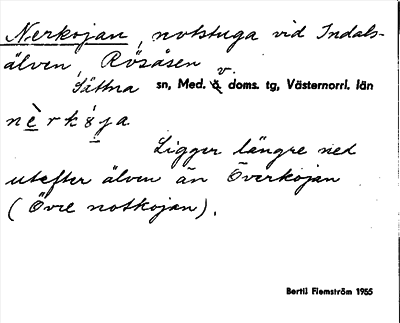 Nerkojan, notstuga vid Indals-
älven, Rösåsen
Sättna sn, Med. v. doms. tg, Västernorrl. län
nèrkója
Ligger längre ned
utefter älven än Överkojan
(Övre notkojan).
Bertil Flemström 1955